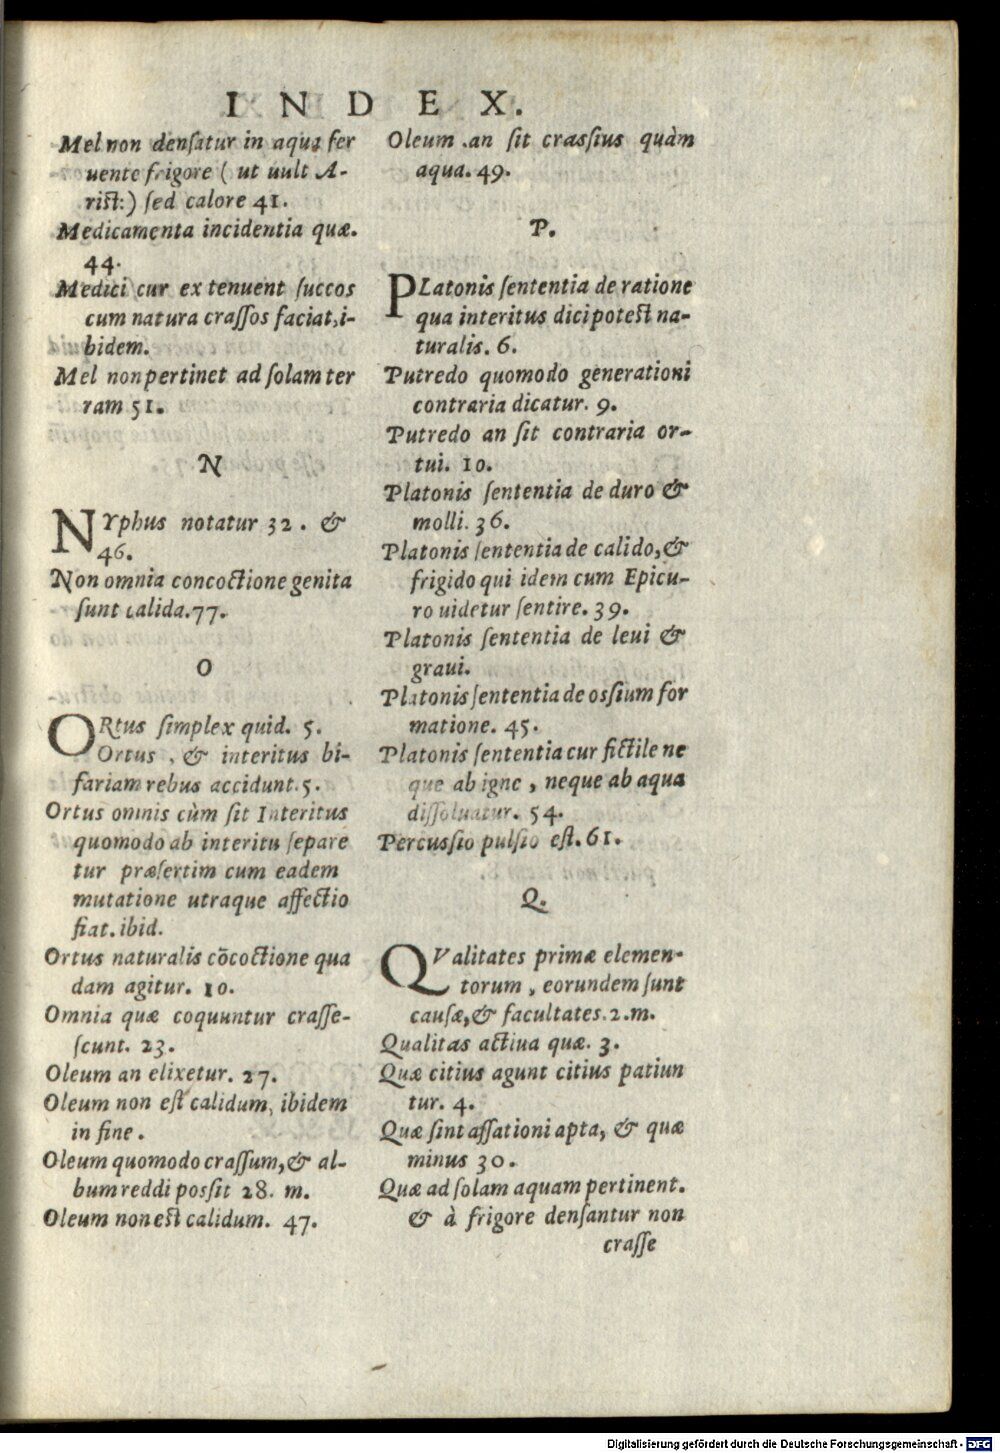 INDEX.
Mel non densatur in aqua fer
uente frigore ( ut uult A-
rist:) sed calore 41.
Medicamenta incidentia quæ.
44.
Medici cur extenuent succos
cum natura crassos faciat, i-
bidem.
Mel non pertinet ad solam ter
ram 51.
N
NYphus notatur 32. &
46.
Non omnia concoctione genita
sunt calida. 77.
O
ORtus simplex quid. 5.
Ortus, & interitus bi-
fariam rebus accidunt. 5.
Ortus omnis cùm sit Interitus
quomodo ab interitu separe
tur præsertim cum eadem
mutatione utraque affectio
fiat. ibid.
Ortus naturalis cõcoctione qua
dam agitur. 10.
Omnia quæ coquuntur crasse-
scunt. 23.
Oleum an elixetur. 27.
Oleum non est calidum, ibidem
in fine.
Oleum quomodo crassum, & al-
bum reddi possit 28. m.
Oleum non est calidum. 47.
Oleum an sit crassius quàm
aqua. 49.
P.
PLatonis sententia de ratione
qua interitus dici potest na-
turalis. 6.
Putredo quomodo generationi
contraria dicatur. 9.
Putredo an sit contraria or-
tui. 10.
Platonis sententia de duro &
molli. 36.
Platonis sententia de calido, &
frigido qui idem cum Epicu-
ro uidetur sentire. 39.
Platonis sententia de leui &
graui.
Platonis sententia de ossium for
matione. 45.
Platonis sententia cur fictile ne
que ab igne, neque ab aqua
dissoluatur. 54.
Percussio pulsio est. 61.
Q.
QValitates primæ elemen-
torum, eorundem sunt
causæ, & facultates. 2. m.
Qualitas actiua quæ. 3.
Quæ citius agunt citius patiun
tur. 4.
Quæ sint assationi apta, & quæ
minus 30.
Quæ ad solam aquam pertinent.
& à frigore densantur non
crasse
Digitalisierung gefördert durch die Deutsche Forschungsgemeinschaft - DFG